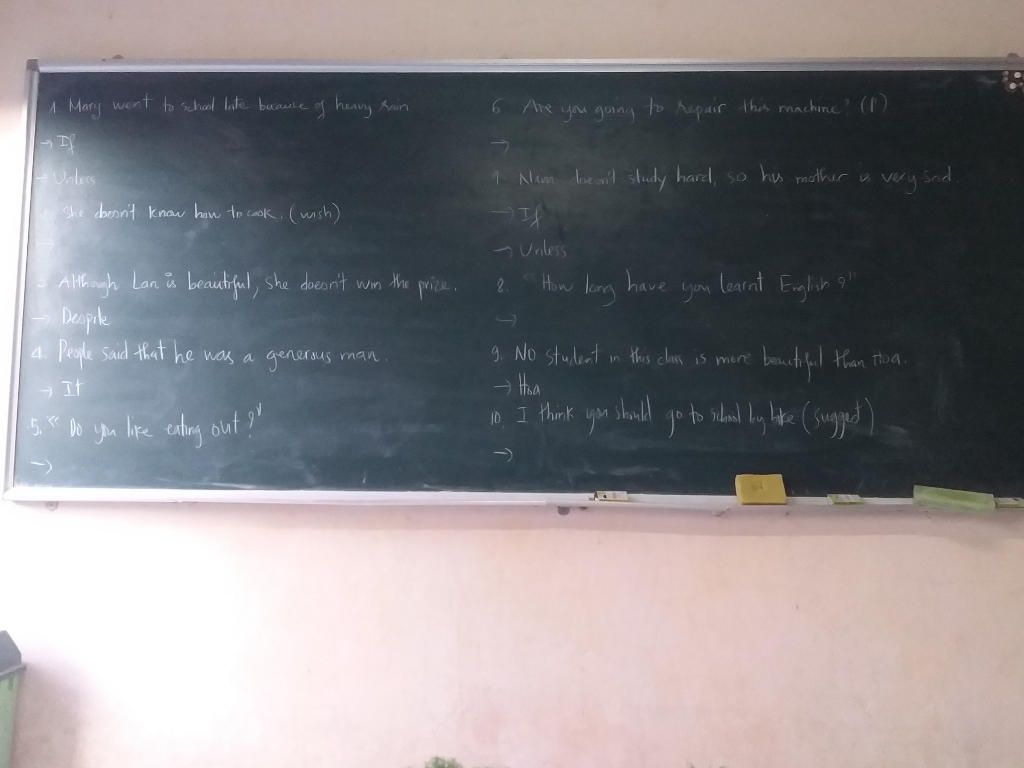 1. Mary went to school late because of heavy rain
→ If
→ Unless
She doesn't know how to cook. (wish)
→
3. Although Lan is beautiful, she doesn't win the prize.
→ Despite
4. People said that he was a generous man.
→ It
5. "Do you like eating out?"
→
6. Are you going to repair this machine? (P)
→
7. Nam doesn't study hard, so his mother is very sad.
→ If
→ Unless
8. "How long have you learnt English?"
→
9. No student in this class is more beautiful than Hoa.
→ Hoa
10. I think you should go to school by bike (suggest)
→